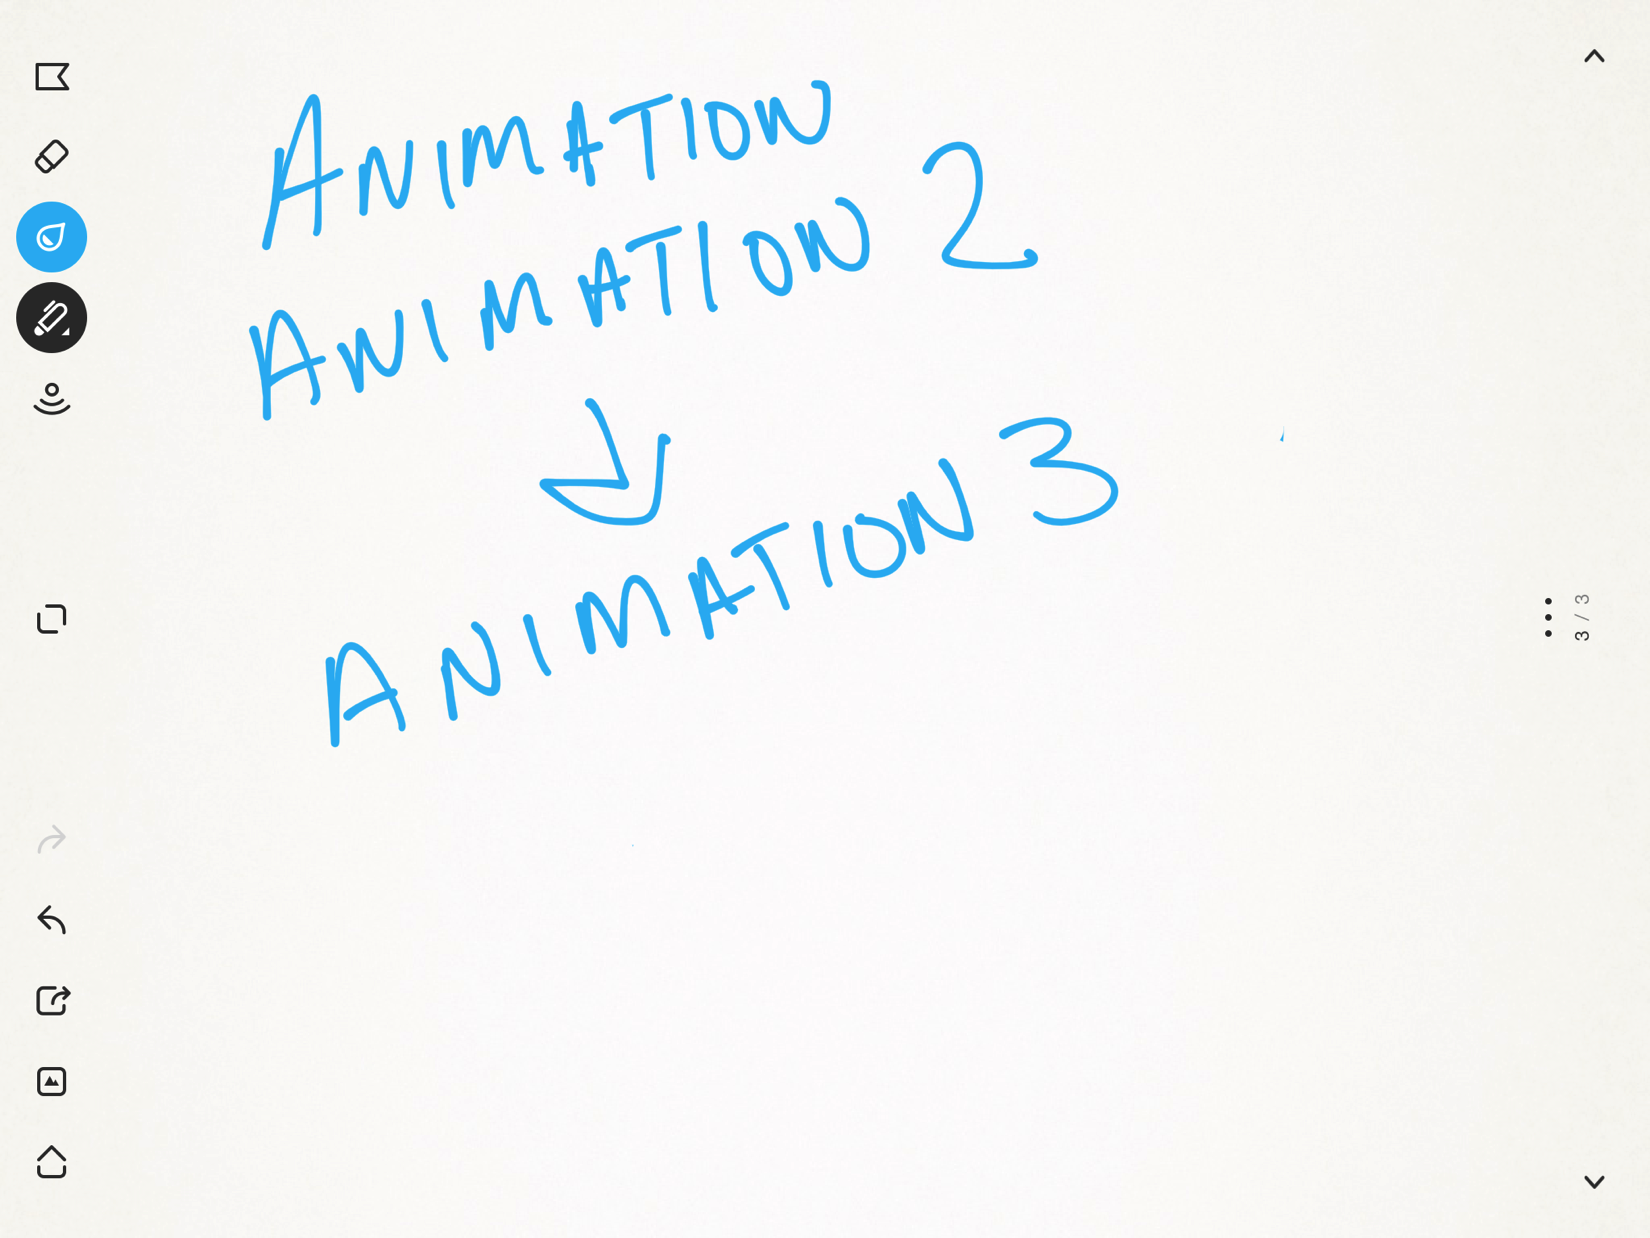 ANIMATION
ANIMATION 2
ANIMATION 3
3 / 3